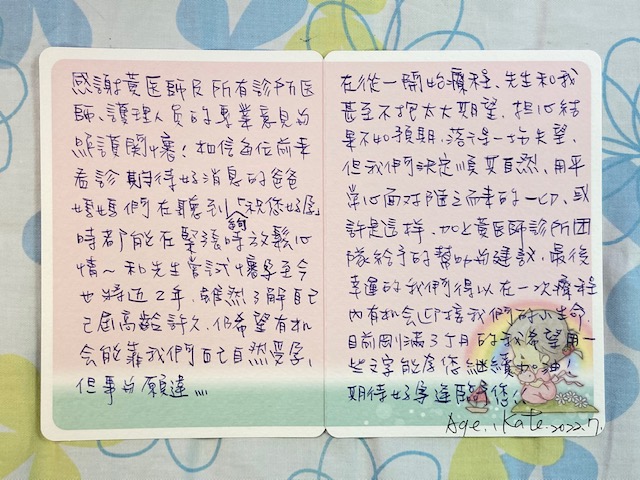 感謝黃医師及所有診所医
師、護理人員的專業意見與
照護關懷！相信每位前來
看診期待好消息的爸爸
媽媽們在聽到「祝您好孕」
時都能夠在緊張時放鬆心
情～和先生嘗試懷孕至今
也將近2年，雖然了解自己
已屆高齡許久，但希望有机
会能靠我們自己自然受孕，
但事與願違....
在從一開始療程，先生和我
甚至不抱太大期望，担心結
果不如預期，落得一場失望，
但我們決定順其自然，用平
常心面对隨之而來的一切，或
許是這樣，加上黃医師診所团
隊給予的幫助與建議，最後
幸運的我們得以在一次療程
內有机会迎接我們的小生命，
目前剛滿3个月的我希望用一
些文字能為您繼續加油！
期待好孕送臨您！
Age. Kate. 2022.7.